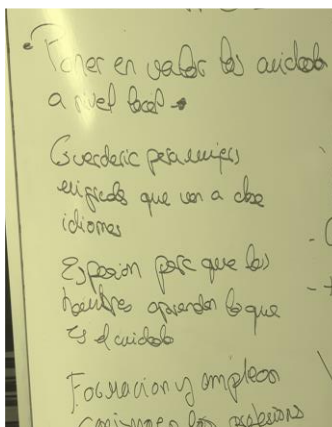 Poner en valor los cuidados
a nivel local
Guarderia para mujeres
migradas que van a clase
idiomas
Espacios para que los
hombres aprendan lo que
es el cuidado
Formacion y empleos